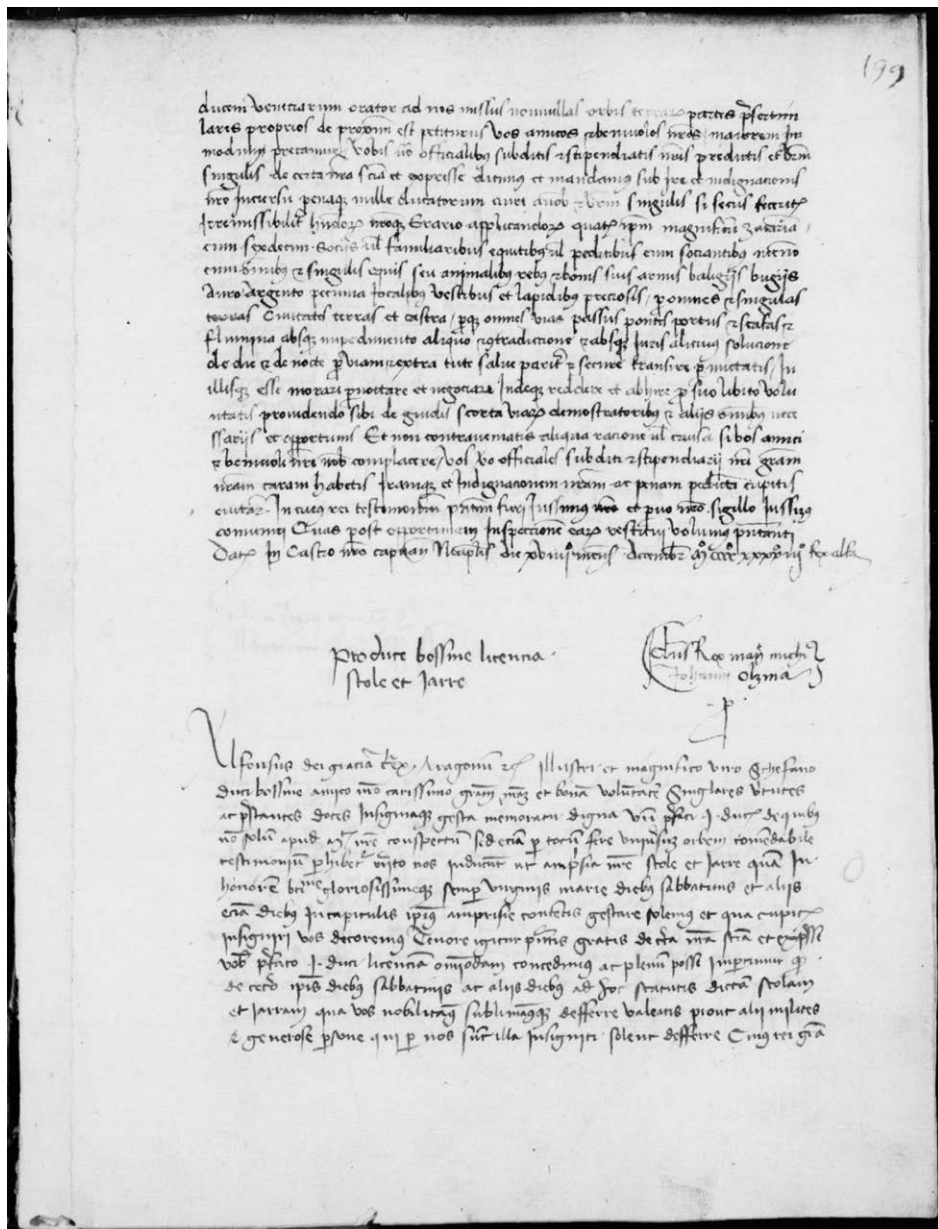 199
ducem Veneciarum orator ad nos missus nonnullas orbis terrarum partes presertim
lares proprios de proximo est petiturus vos amicos et benivolos nros maiorem in
modum precamur vobis vero officialibus subditis et stipendiatis nris predictis et vrm
singulis de certa nra scia et expresse dicimus et mandamus sub ire et indignacionis
nre incursu penaque mille ducatorum cuivis avob et vrm singulis si secus feceritis
irremissibilit nroque Erario applicandorum quatenus ipm magnificum
cum sexdecim socijs vel familiaribus equitibus vel peditibus eum sociantibus necno
cum omnibus et singulis equis seu animalibus rebus et bonis suis armis balegijs bugijs
Auro Argento pecunia Jocalibus vestibus et lapidibus preciosis per omnes et singulas
terras Civitates terras et castra perque omnes vias passus pontes portus et scafas et
flumina absque impedimento aliquo et contradictione et absque Juris alicuius solucione
de die et de nocte per viam et extra tute salve pariter et secure transire permictatis In
illisque esse morari pernoctare et negociari Indeque reddere et abhire pro suo libito volu
ntatis providendo sibi de guidis scorta viarum demostratoribus et alijs omnibus nece
ssarijs et opportunis Et non contraveniatis aliqua racione vel causa si vos amici
et benivoli nri nob complacere vos vero officiales subditi et stipendiarij nri gram
nram caram habetis Iramque et Indignacionem nram ac penam predictam cupitis
evitare In cuius rei testimonium pntem fieri Jussimus et pvo nro sigillo Jussimus
comuniri Quas post opportunam Inspeccionem earum restitui volumus pntanti
Dat In Castro nro capuan Neaplis die xviiijº mensis decembr Mº ccccº xxxxº vijº Rex alfonsus
Pro duce bossine licencia
stole et Jarre
Dnus Rex man michi
Johanni Olzina
p
Alfonsus dei gracia Rex Aragonum etc Illustri et magnifico viro Stefano
duci bossine amico nro carissimo gram nram et bonam voluntate Singlares virtutes
ac prestantes dotes Insigniaque gesta memoratu digna vri prefati I ducis de quibus
no solum apud nre conspectum sed eciam per totum fere universum orbem comendabile
testimonium perhibetur mito nos inducunt ut amprisia nre stole et Jarre quam In
honorem btme gloriosissimeque semper virginis marie diebus sabbatinis et aliis
eciam diebus In capitulis ipius amprisie contentis gestare solemus et qua cupitis
insigniri vos decoremus Tenore igitur pntis gratis de certa nra scia et expresse
vob prefato I duci licenciam omodam concedimus ac plenum posse Impertimur quod
de cetero ipis diebus sabbatinis ac aliis diebus ad hoc statutis dictam stolam
et Jarram qua vos nobilitamus sublimamusque defferre valeatis prout alii milites
et generose persone qui per nos sunt illa Insigniti solent defferre Cuius rei gra